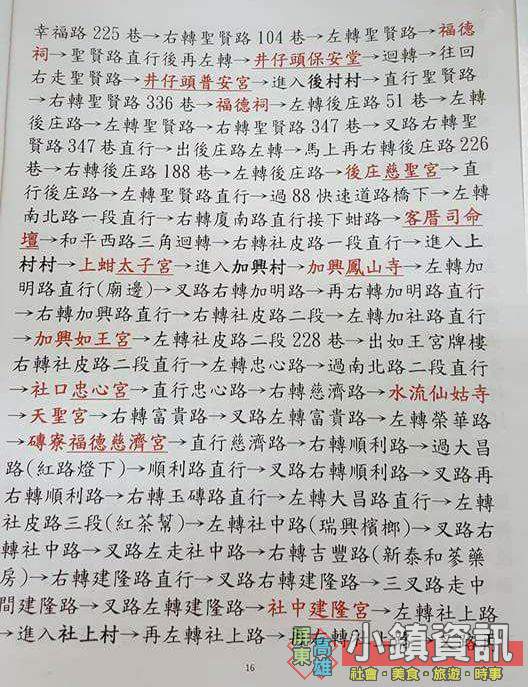 幸福路 225 巷→右轉聖賢路 104 巷→左轉聖賢路→福德
祠→聖賢路直行後再左轉→井仔頭保安堂→迴轉→往回
右走聖賢路→井仔頭普安宮→進入後村村→直行聖賢路
→右轉聖賢路 336 巷→福德祠→左轉後庄路 51 巷→左轉
後庄路→左轉聖賢路→右轉聖賢路 347 巷→叉路右轉聖
賢路 347 巷直行→出後庄路左轉→馬上再右轉後庄路 226
巷→右轉後庄路 188 巷→左轉後庄路→後庄慈聖宮→直
行後庄路→左轉聖賢路直行→過 88 快速道路橋下→左轉
南北路一段直行→右轉廈南路直行接下蚶路→客厝司命
壇→和平西路三角迴轉→右轉社皮路一段直行→進入上
村村→上蚶太子宮→進入加興村→加興鳳山寺→左轉加
明路直行(廟邊)→叉路右轉加明路→再右轉加明路直行
→右轉加興路直行→右轉社皮路二段→左轉加社路直行
→加興如王宮→左轉社皮路二段 228 巷→出如王宮牌樓
右轉社皮路二段直行→左轉忠心路→過南北路二段直行
→社口忠心宮→直行忠心路→右轉慈濟路→水流仙姑寺
→天聖宮→右轉富貴路→叉路左轉富貴路→左轉榮華路
→磚寮福德慈濟宮→直行慈濟路→右轉順利路→過大昌
路(紅路燈下)→順利路直行→叉路右轉順利路→叉路再
右轉順利路→右轉玉磚路直行→左轉大昌路直行→左轉
社皮路三段(紅茶幫)→左轉社中路(瑞興檳榔)→叉路右
轉社中路→叉路左走社中路→右轉吉豐路(新泰和蔘藥
房)→右轉建隆路直行→叉路右轉建隆路→三叉路走中
間建隆路→叉路左轉建隆路→社中建隆宮→左轉社上路
→進入社上村→再左轉社上路→再右轉社上路
16
屏東
高雄
小鎮資訊
社會・美食・旅遊・時事